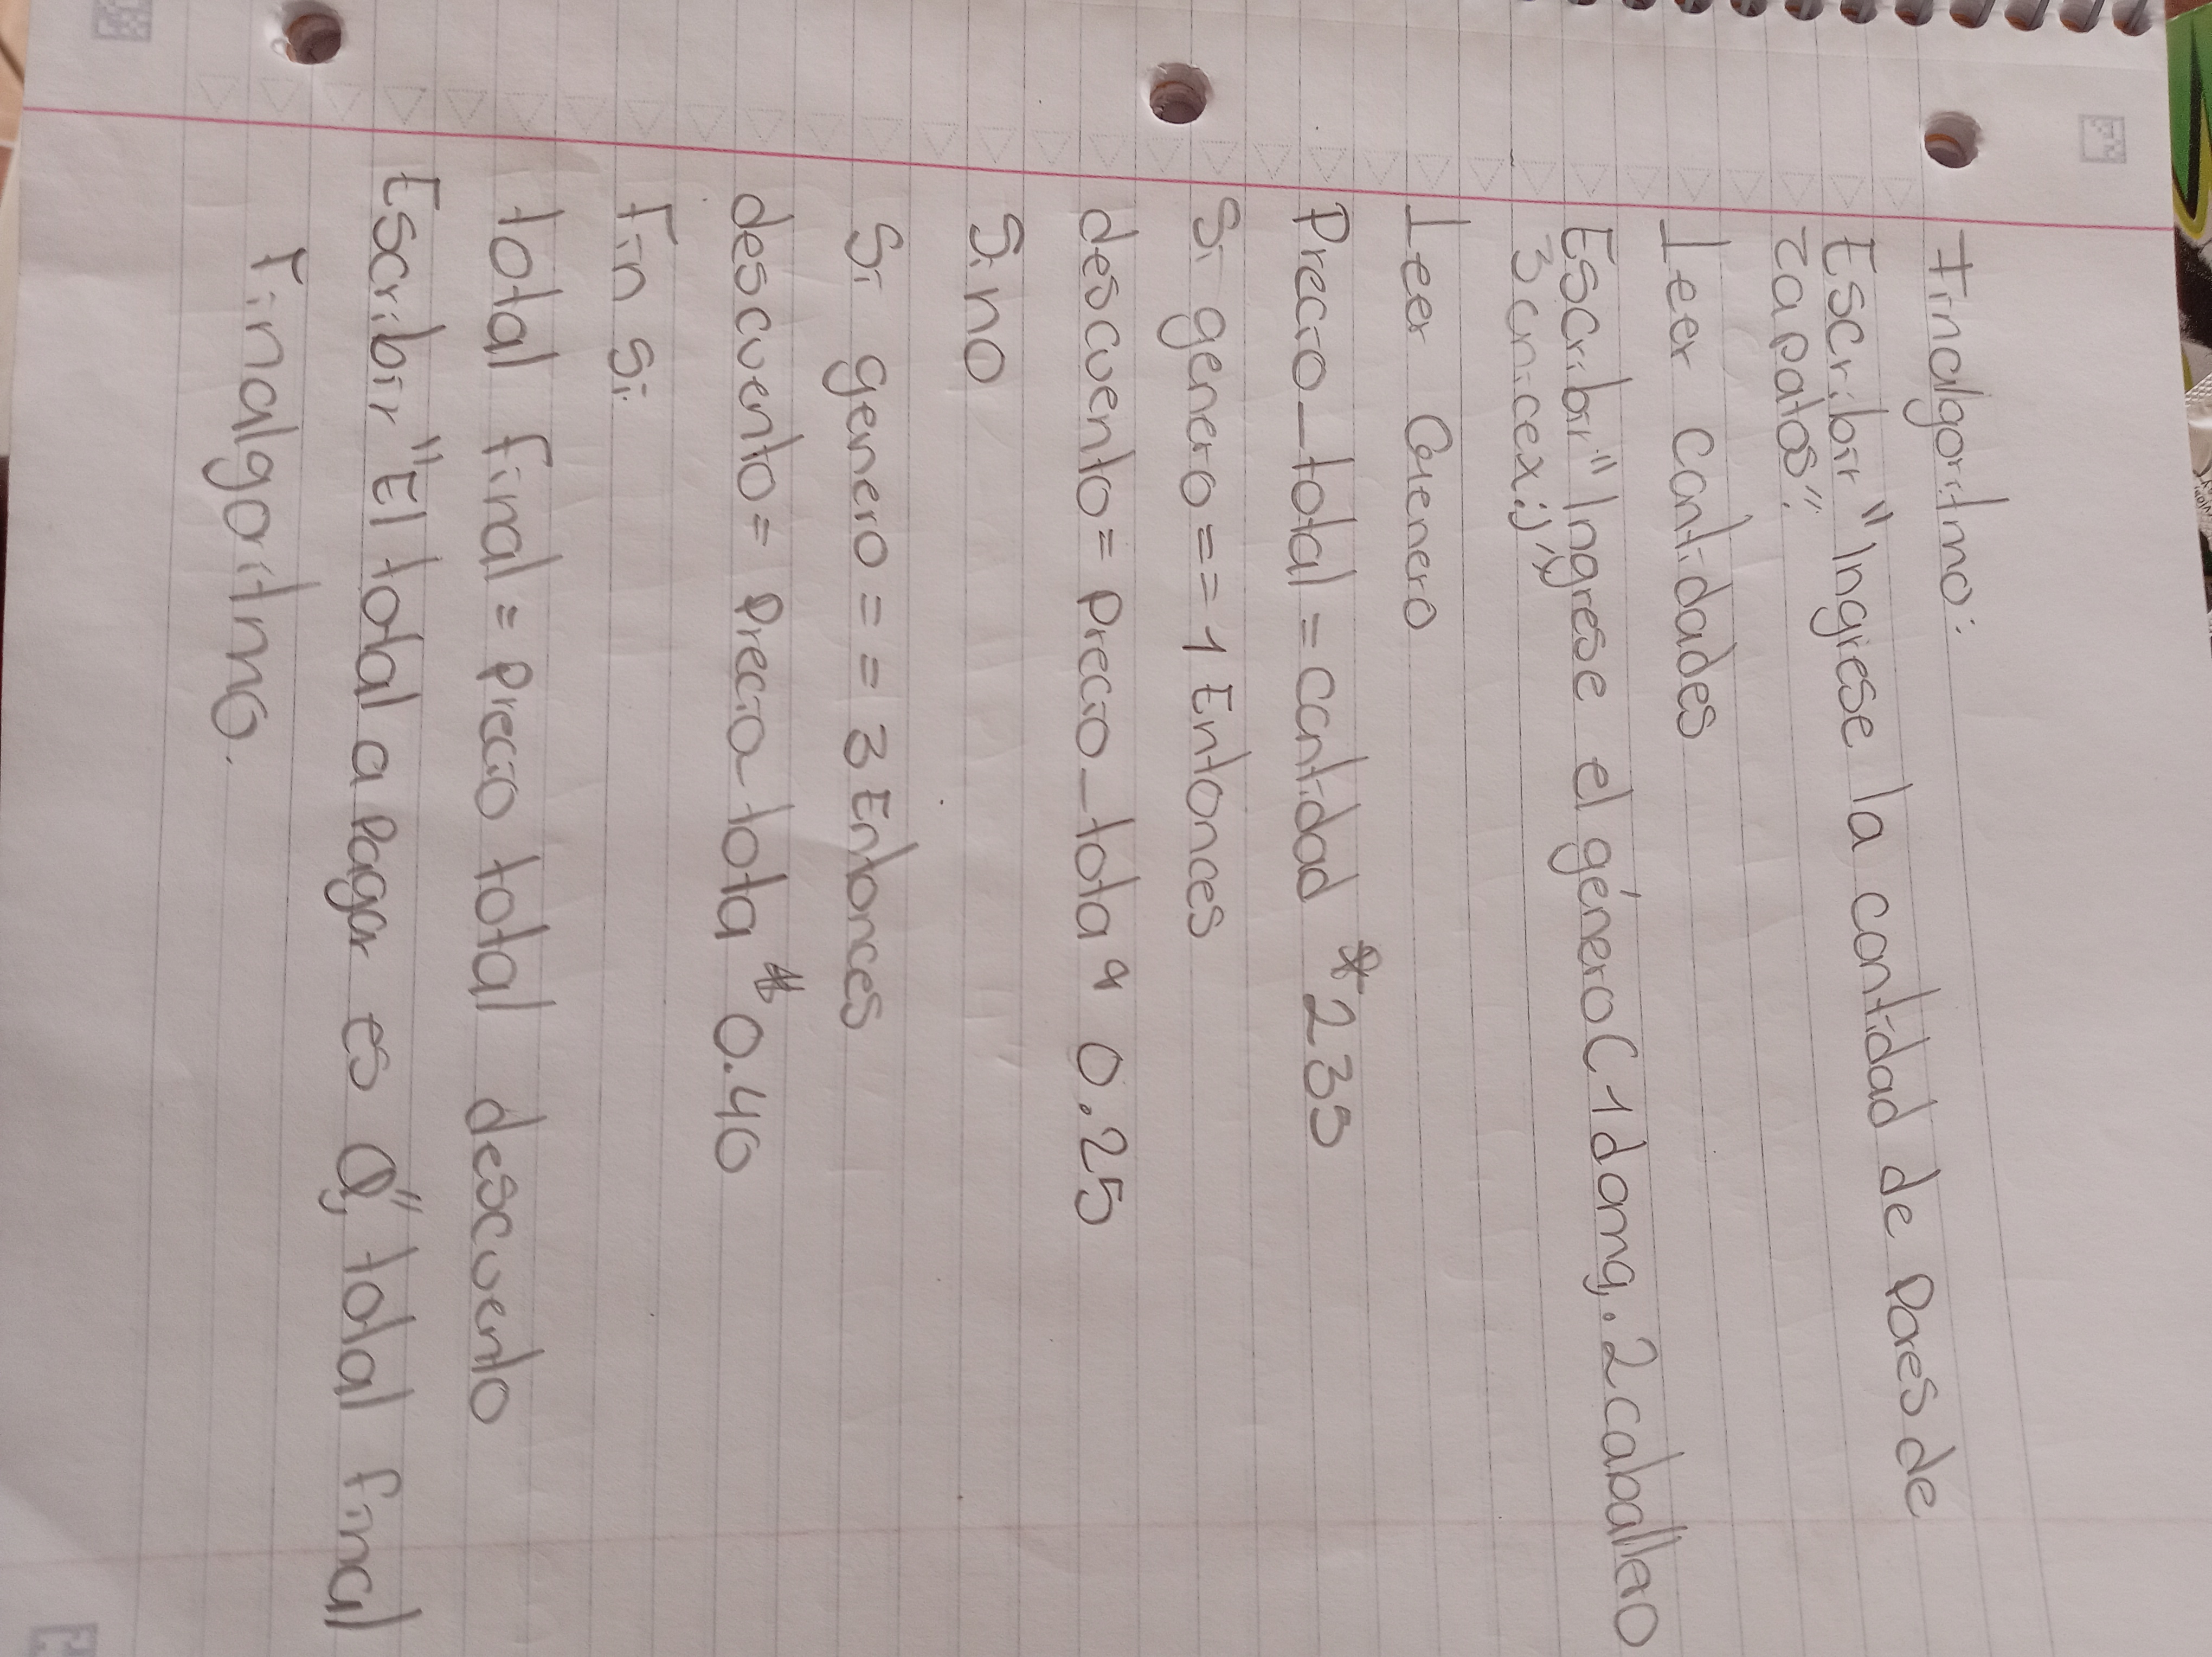 Finalgoritmo:
Escribir "Ingrese la cantidad de Pares de
zapatos":
Leer cantidades
Escribir "Ingrese el género (1 dama, 2 caballero
3 unicex:)"
Leer Genero
Precio_total = cantidad * 235
Si genero == 1 Entonces
descuento = precio_tota * 0.25
Sino
Si genero == 3 Entonces
descuento = Precio tota * 0.40
Fin si
total final = Precio total descuento
Escribir "El total a Pagar es Q", total final
Finalgoritmo.